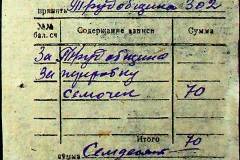 принять Трудовщина 302
№№ бал. сч Содержание записи Сумма
За Трудовщина
За
семочек 70
Итого 70
сумма Семдесят